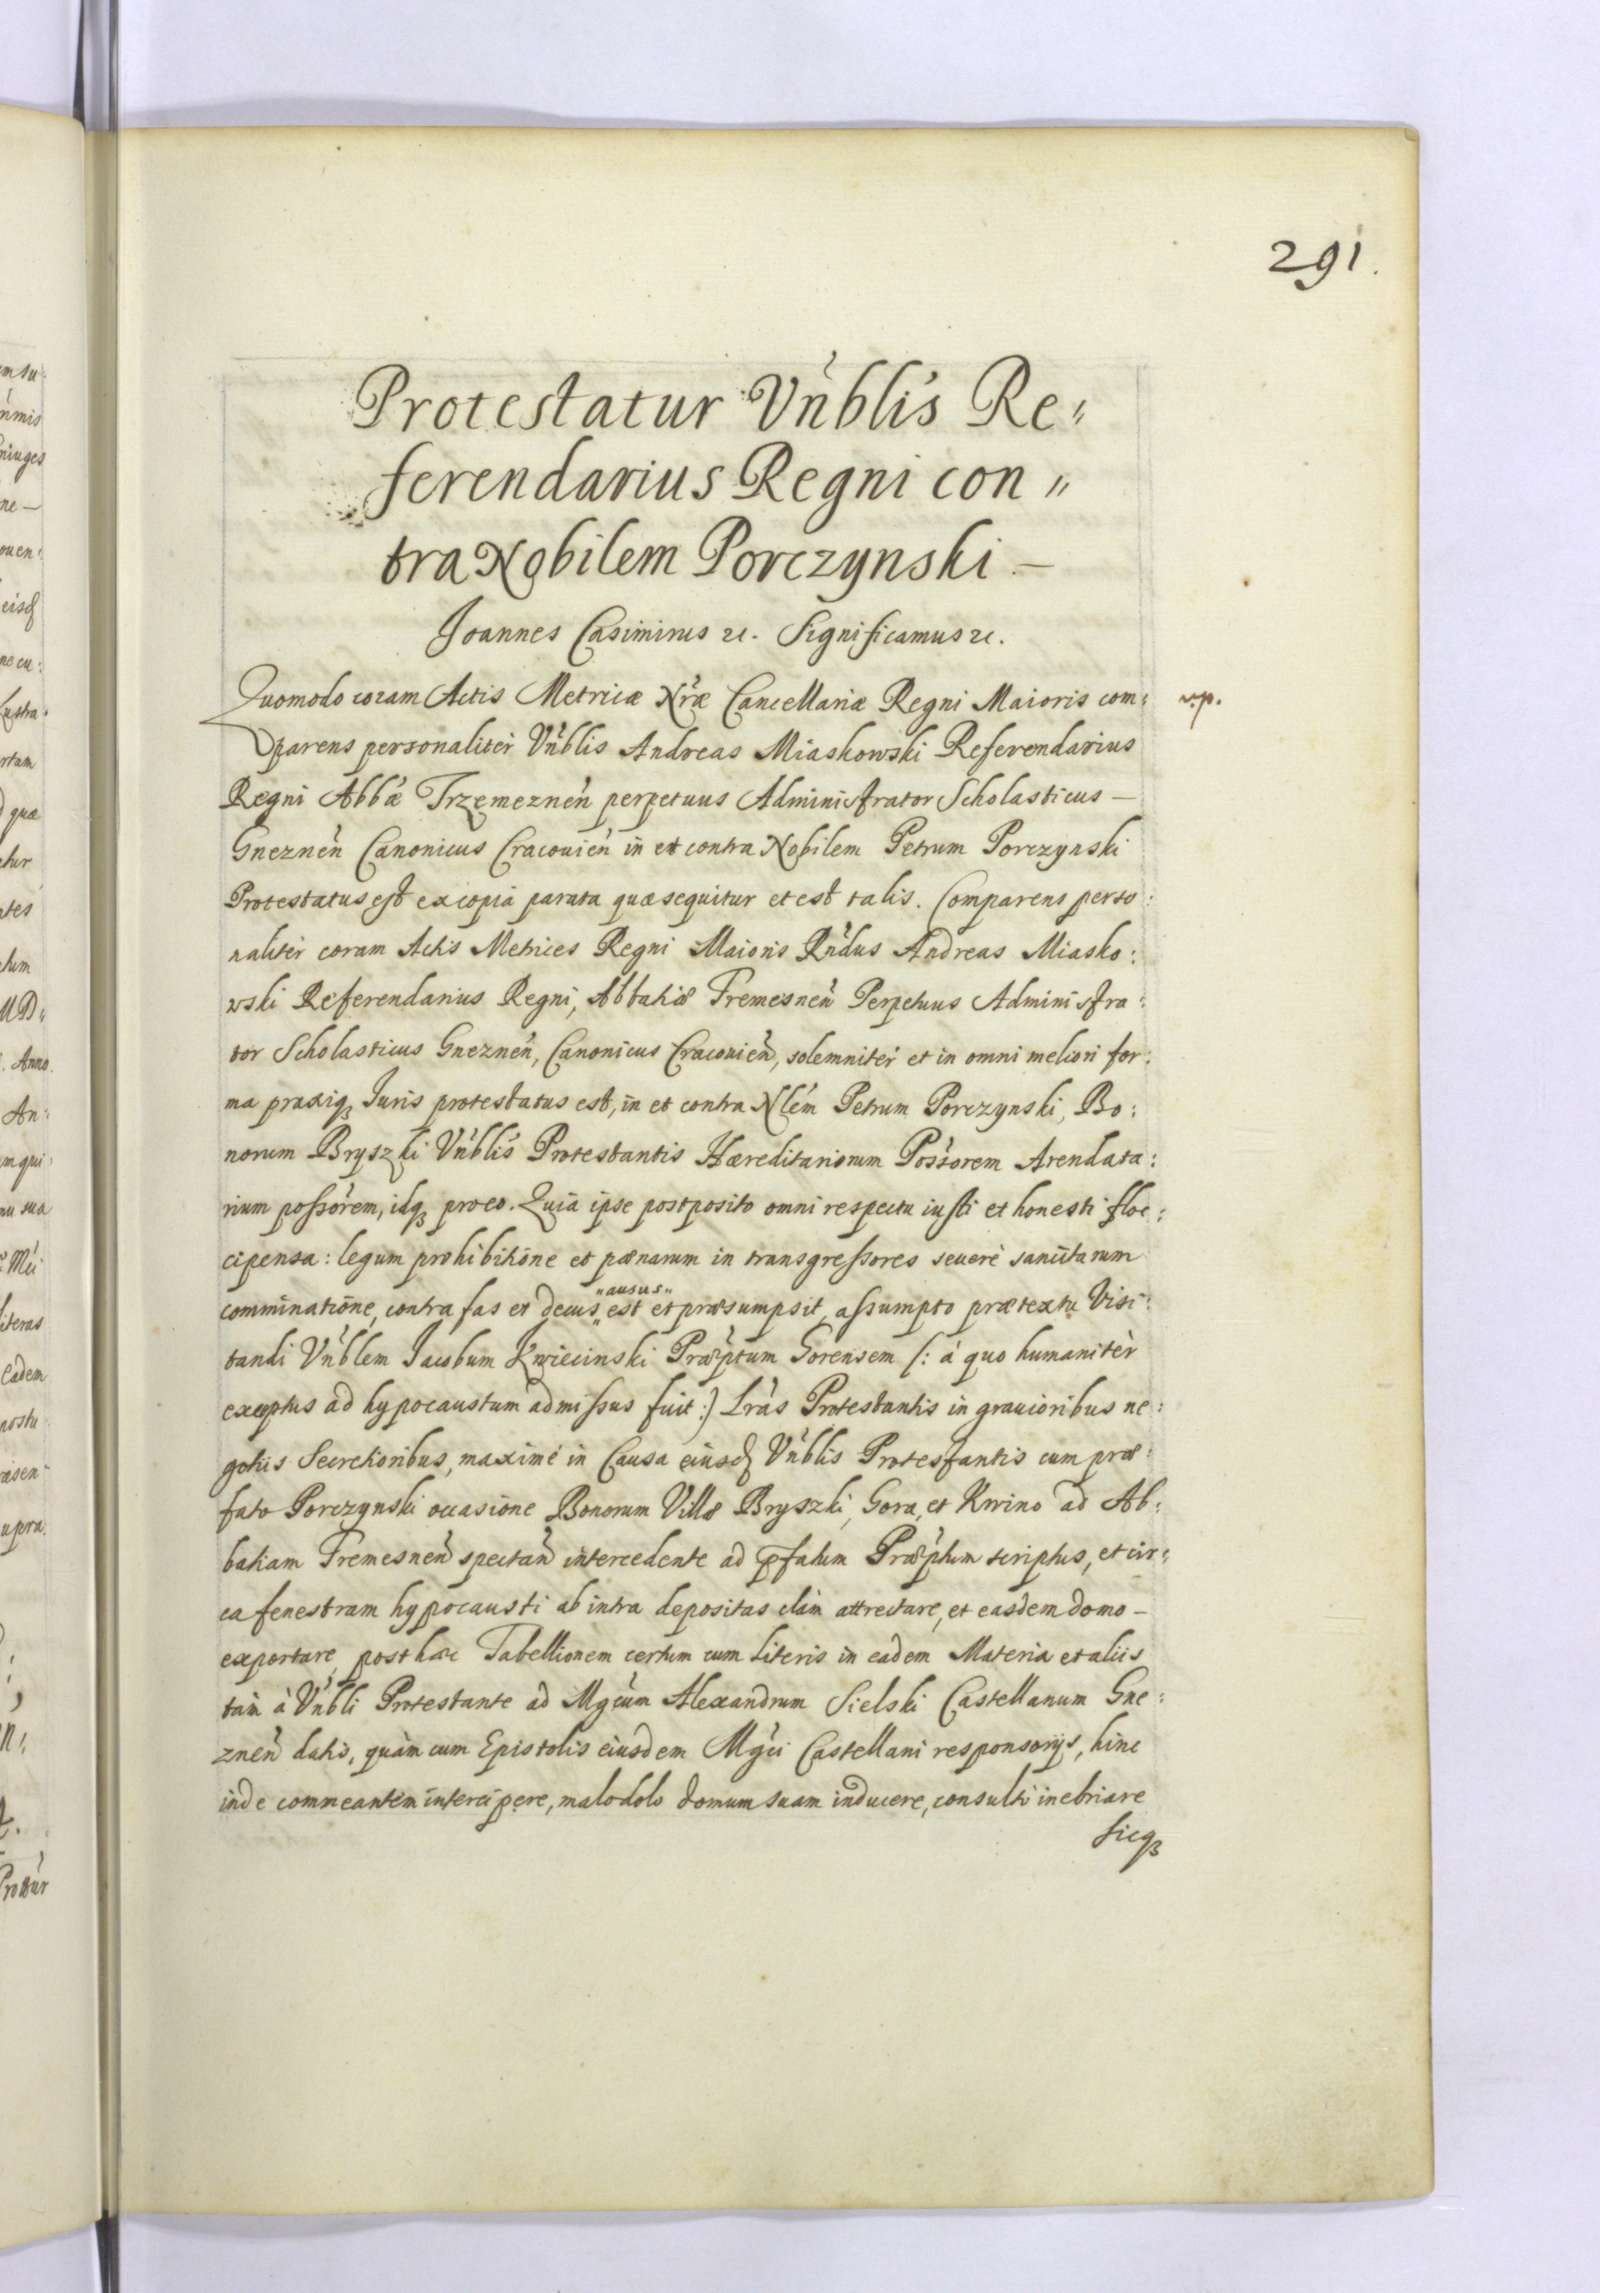 291.
Protestatur Vnblis Re„
ferendarius Regni con„
tra Nobilem Porczynski —
Joannes Casimirus etc. Significamus etc.
Quomodo coram Actis Metricæ Nræ Cancellariæ Regni Maioris com: v.p.
parens personaliter Vnblis Andreas Miaskowski Referendarius
Regni Abbæ Trzemeznen perpetuus Administrator Scholasticus —
Gneznen Canonicus Cracouien in et contra Nobilem Petrum Porczynski
Protestatus est ex copia parata quæ sequitur et est talis. Comparens perso:
naliter coram Actis Metrices Regni Maioris Rndus Andreas Miasko:
wski Referendarius Regni, Abbatiæ Tremesnen Perpetuus Administra:
tor Scholasticus Gneznen, Canonicus Cracouien, solemniter et in omni meliori for:
ma praxiq3 Iuris protestatus est, in et contra Nlem Petrum Porczynski, Bo:
norum Bryszki Vnblis Protestantis Hæreditariorum Possorem Arendata:
rium possorem, idq3 pro eo. Quia ipse postposito omni respectu iusti et honesti floc:
cipensa: legum prohibitione et pænarum in transgressores seuerè sancitarum
comminatione, contra fas et decus „ausus„ est et præsumpsit, assumpto prætextu Visi:
tandi Vnblem Jacobum Kwiecinski Præptum Gorensem /: à quo humaniter
exceptus ad hypocaustum admissus fuit :/ Lras Protestantis in grauioribus ne:
gotiis Secretioribus, maximè in Causa eiusd Vnblis Protestantis cum præ:
fato Porczynski occasione Bonorum Villæ Bryszki, Gora, et Krzino ad Ab:
batiam Tremesnen spectan intercedente ad pfatum Præptum scriptas, et cir:
ca fenestram hypocausti ab intra depositas clàm attrectare, et easdem domo —
exportare, post hæc Tabellionem certum cum literis in eadem Materia et aliis
tàm à Vnbli Protestante ad Mgcum Alexandrum Sielski Castellanum Gne:
znen datis, quàm cum Epistolis eiusdem Mgci Castellani responsorijs, hinc
inde commeantem intercipere, malo dolo domum suam inducere, consultò inebriare
sicq3